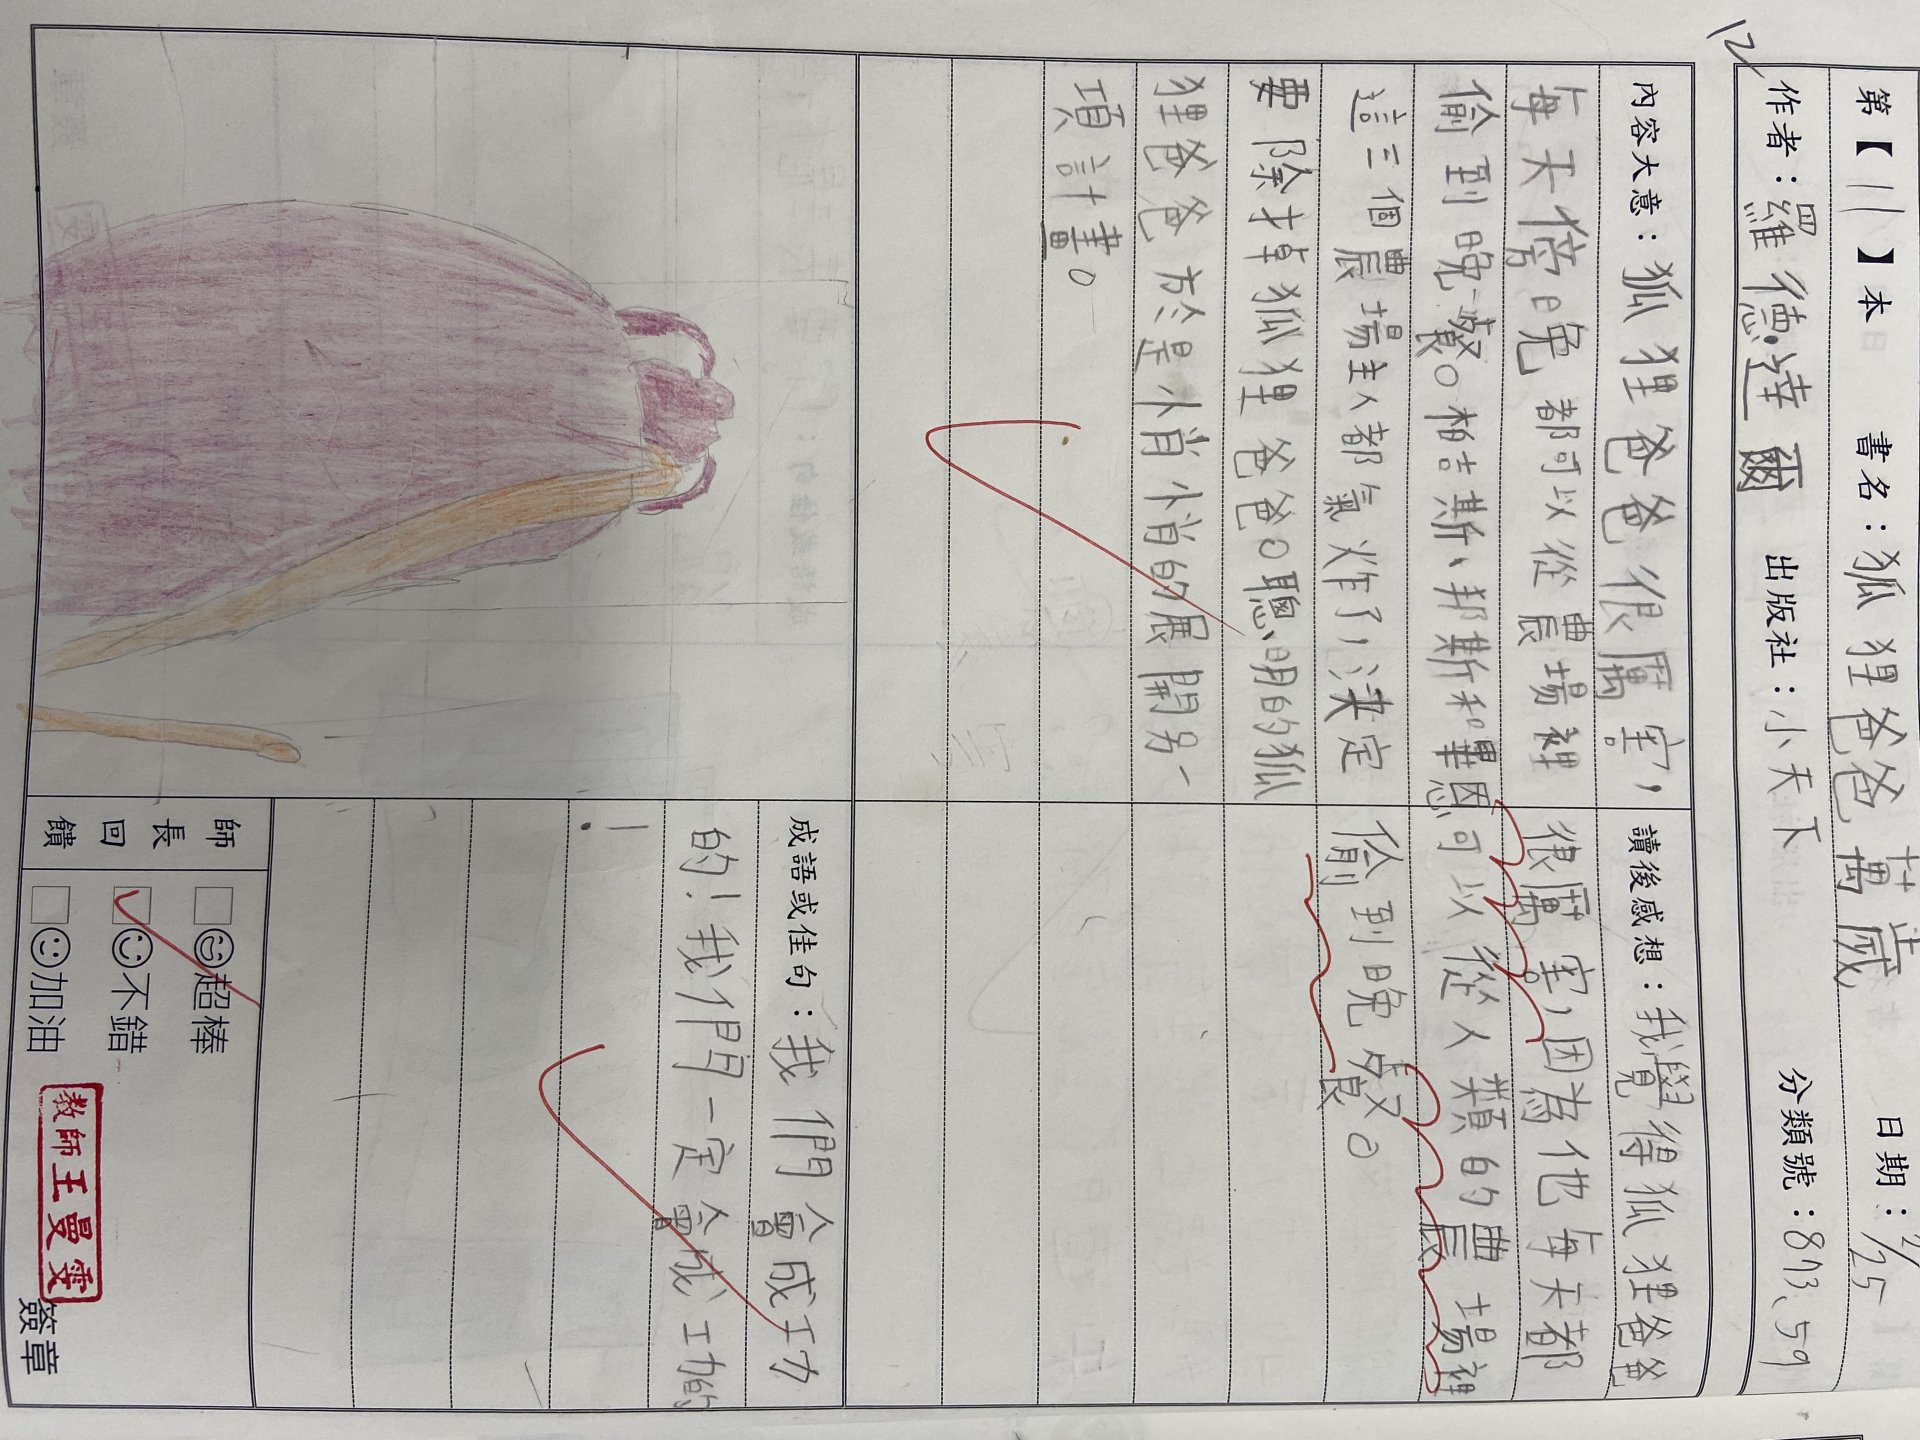 12
第【11】本 書名：狐狸爸爸萬歲 日期：/25
作者：羅德達爾 出版社：小天下 分類號：873.59
內容大意：狐狸爸爸很厲害，
每天傍晚都可以從農場裡
偷到晚餐。柏吉斯、邦斯和畢恩
這三個農場主人都氣炸了，決定
要除掉狐狸爸爸。聰明的狐
狸爸爸於是小肖小肖的展開另一
項計畫。
讀後感想：我覺得狐狸爸爸
很厲害，因為他每天都
可以從人類的農場裡
偷到晚餐。
成語或佳句：我們會成功
的！我們一定會成功的
！
師長回饋
□超棒
□不錯
□加油
教師王曼雯
簽章